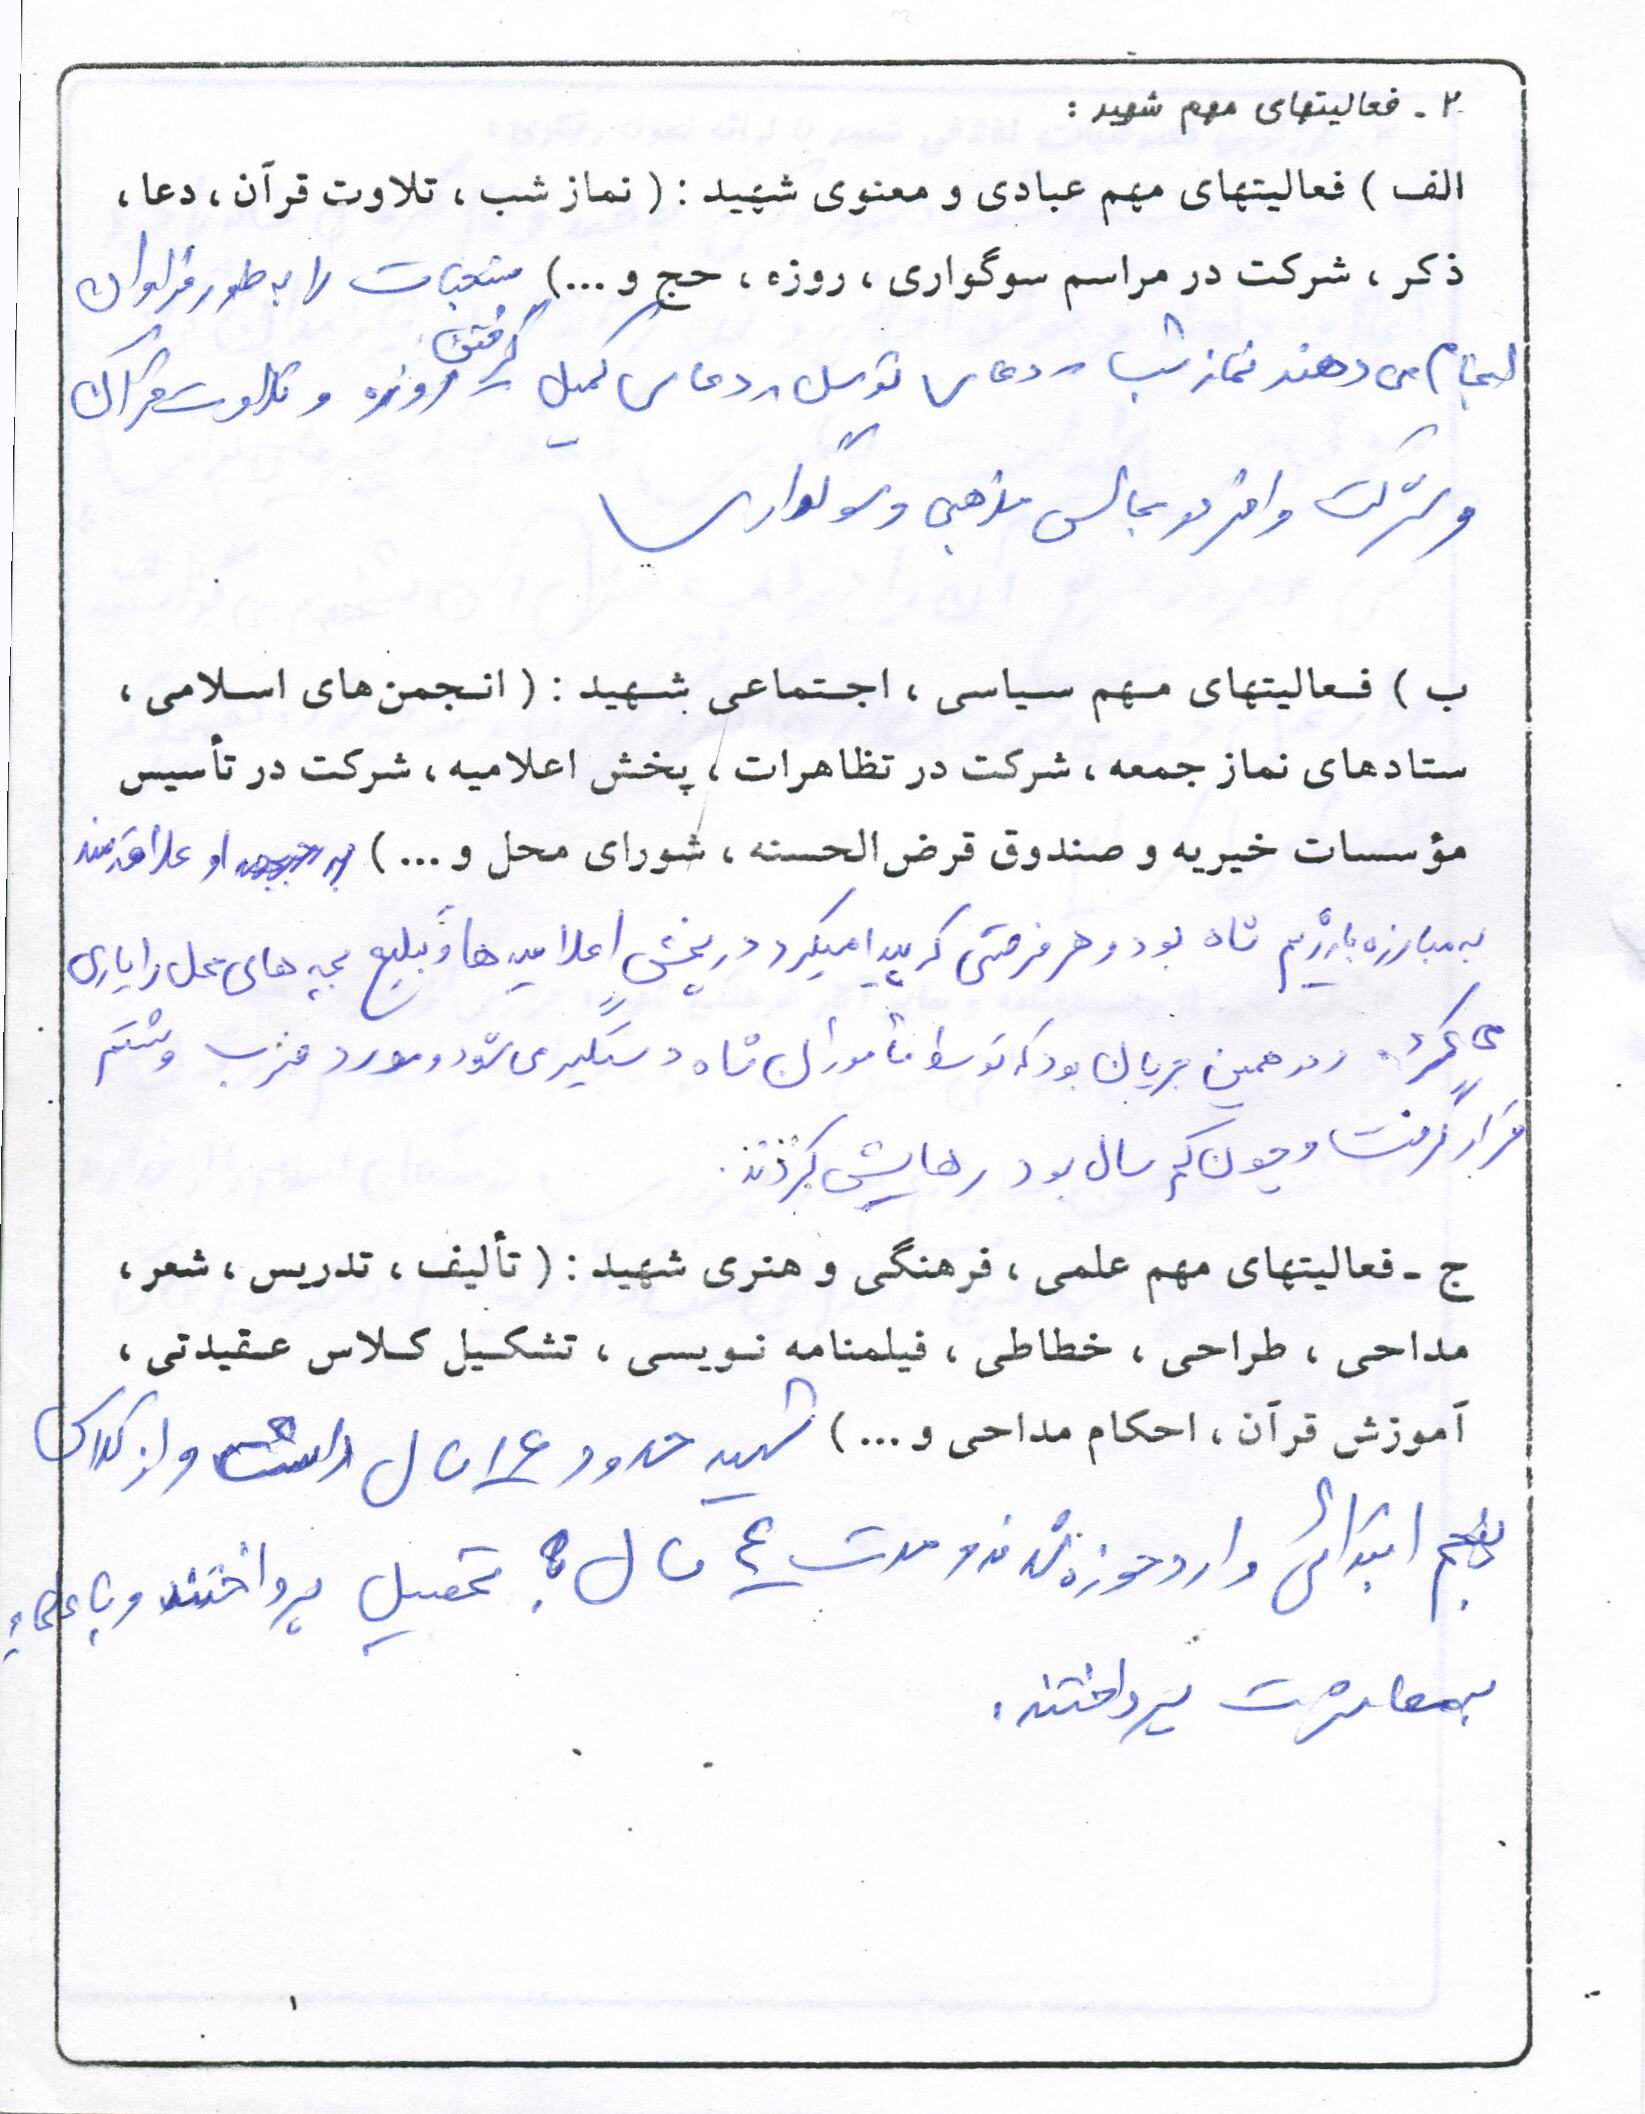 ۲ ـ فعالیتهای مهم شهید :
الف ) فعالیتهای مهم عبادی و معنوی شهید : ( نماز شب ، تلاوت قرآن ، دعا ،
ذکر ، شرکت در مراسم سوگواری ، روزه ، حج و ... ) مستحبات را به طور فراوان
انجام می دهند نماز شب - دعای توسل دعای کمیل گرفتن روزه و تلاوت قرآن
و شرکت وافر در مجالس مذهبی و سوگواری
ب ) فعالیتهای مهم سیاسی ، اجتماعی شهید : ( انجمن های اسلامی ،
ستادهای نماز جمعه ، شرکت در تظاهرات ، پخش اعلامیه ، شرکت در تأسیس
مؤسسات خیریه و صندوق قرض الحسنه ، شورای محل و ... ) او علاقمند
به مبارزه با رژیم شاه بود و هر فرصتی که پیدا میکرد در پخش اعلامیه ها و تبلیغ بچه های محل را یاری
می کرد. در همین جریان بود که توسط مأموران شاه دستگیر می شود و مورد ضرب و شتم
قرار گرفت و چون کم سال بود رهایش کردند.
ج ـ فعالیتهای مهم علمی ، فرهنگی و هنری شهید : ( تألیف ، تدریس ، شعر ،
مداحی ، طراحی ، خطاطی ، فیلمنامه نویسی ، تشکیل کلاس عقیدتی ،
آموزش قرآن ، احکام مداحی و ... ) شهید حدود ۱۶ سال داشت و از کلاس
پنجم ابتدائی وارد حوزه شدند و مدت ۴ سال به تحصیل پرداختند و با علماء
بمعاشرت پرداختند.